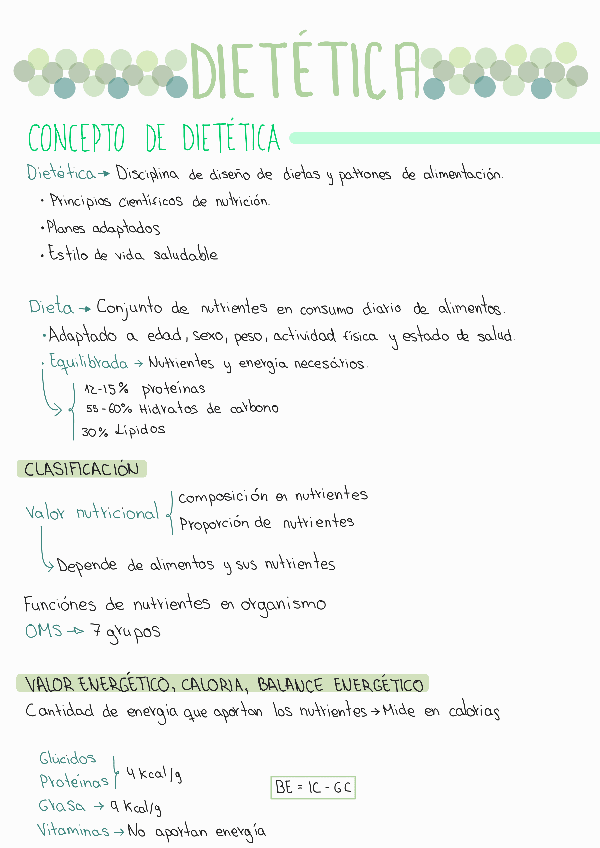 DIETÉTICA
CONCEPTO DE DIETÉTICA
Dietética → Disciplina de diseño de dietas y patrones de alimentación.
· Principios científicos de nutrición.
· Planes adaptados
· Estilo de vida saludable
Dieta → Conjunto de nutrientes en consumo diario de alimentos.
· Adaptado a edad, sexo, peso, actividad física y estado de salud.
· Equilibrada → Nutrientes y energía necesários.
12-15% proteínas
55-60% Hidratos de carbono
30% Lípidos
CLASIFICACIÓN
Valor nutricional
Composición en nutrientes
Proporción de nutrientes
Depende de alimentos y sus nutrientes
Funciónes de nutrientes en organismo
OMS → 7 grupos
VALOR ENERGÉTICO, CALORIA, BALANCE ENERGÉTICO
Cantidad de energia que aportan los nutrientes → Mide en calorias
Glúcidos
Proteínas
4 kcal/g
Grasa → 9 kcal/g
Vitaminas → No aportan energía
BE = IC - GC